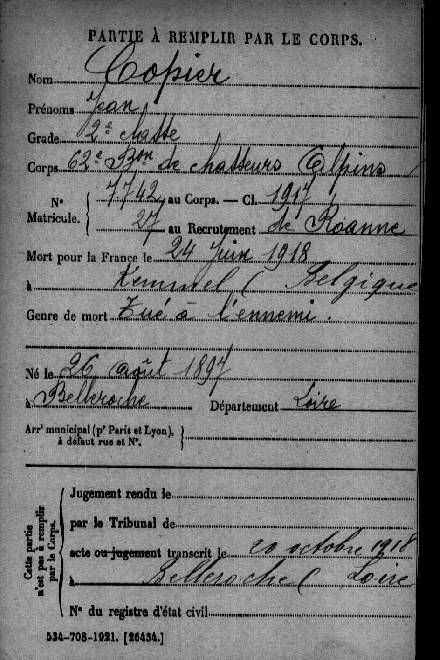 PARTIE À REMPLIR PAR LE CORPS.
Nom Copier
Prénoms Jean
Grade 2e classe
Corps 62e Bon de chasseurs Alpins
N° Matricule. { 7742 au Corps. — Cl. 1917
27 au Recrutement de Roanne
Mort pour la France le 24 Juin 1918
à Kemmel ( Belgique
Genre de mort Tué à l'ennemi.
Né le 26 août 1897
à Belleroche Département Loire
Arrt municipal (pr Paris et Lyon), à défaut rue et N°. }
Cette partie n'est pas à remplir par le Corps.
Jugement rendu le
par le Tribunal de
acte ou jugement transcrit le 20 octobre 1918
à Belleroche ( Loire
N° du registre d'état civil
534-708-1921. [26434.]